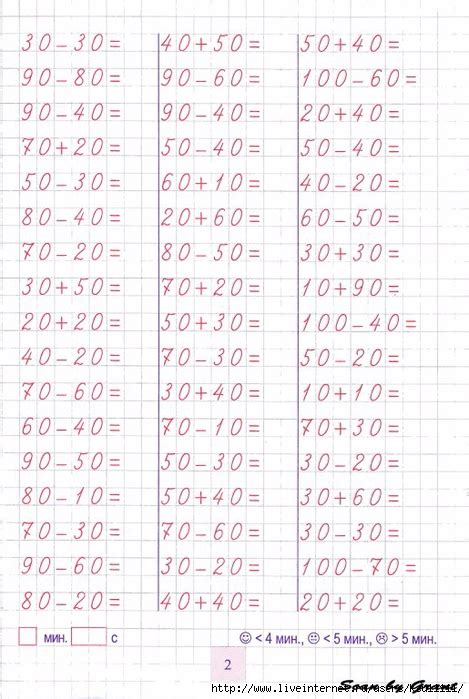 30-30= 40+50= 50+40=
90-80= 90-60= 100-60=
90-40= 90-40= 20+40=
70+20= 50-40= 50-40=
50-30= 60+10= 40-20=
80-40= 20+60= 60-50=
70-20= 80-50= 30+30=
30+50= 70+20= 10+90=
20+20= 50+30= 100-40=
40-20= 70-30= 50-20=
70-60= 30+40= 10+10=
60-40= 70-10= 70+30=
90-50= 50-30= 30-20=
80-10= 50+40= 30+60=
70-30= 70-60= 30-30=
90-60= 30-20= 100-70=
80-20= 40+40= 20+20=
мин. с < 4 мин., < 5 мин., > 5 мин.
2
Scan by